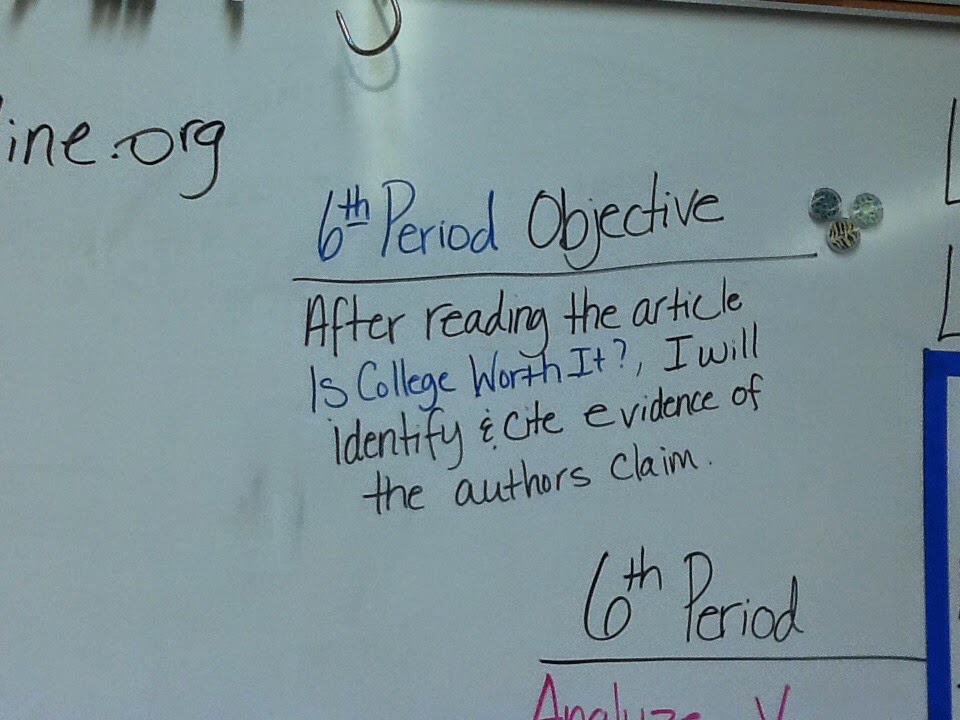 ine.org
6th Period Objective
After reading the article
Is College Worth It?, I will
identify & cite evidence of
the authors claim.
6th Period
Analyze